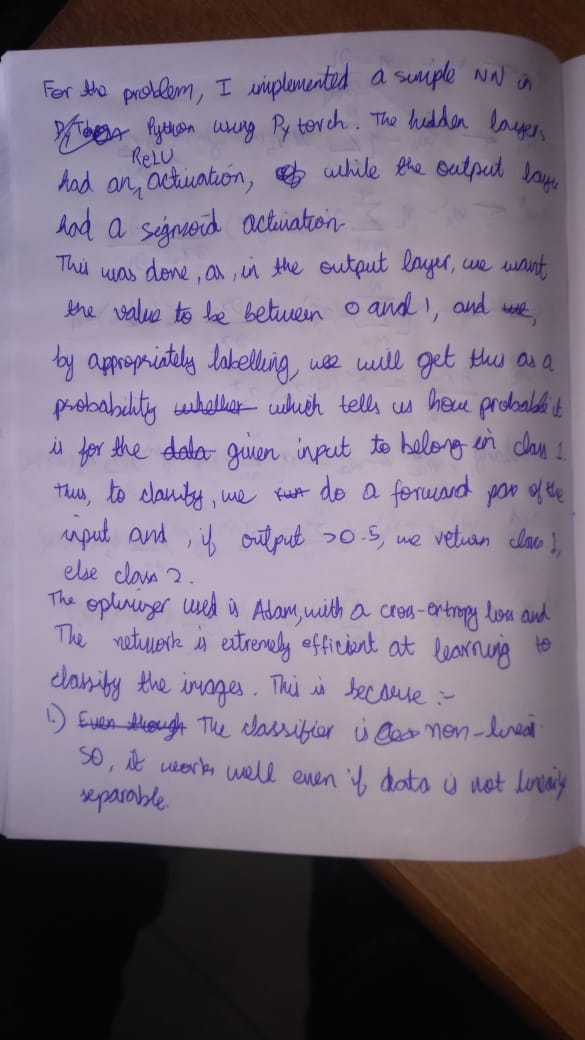 For the problem, I implemented a simple NN in
Python using Pytorch. The hidden layers
ReLU
had an activation, while the output layer
had a segmoid activation.
This was done, as, in the output layer, we want
the value to be between 0 and 1, and we,
by appropriately labelling, we will get this as a
probability whether which tells us how probable it
is for the data given input to belong in class 1.
Thus, to clarify, we run do a forward pass of the
input and, if output >0.5, we return class 1,
else class 2.
The optimizer used is Adam, with a cross-entropy loss and
The network is extremely efficient at learning to
classify the images. This is because :-
1.) Even though The classifier is non-linear.
So, it works well even if data is not linearly
separable.